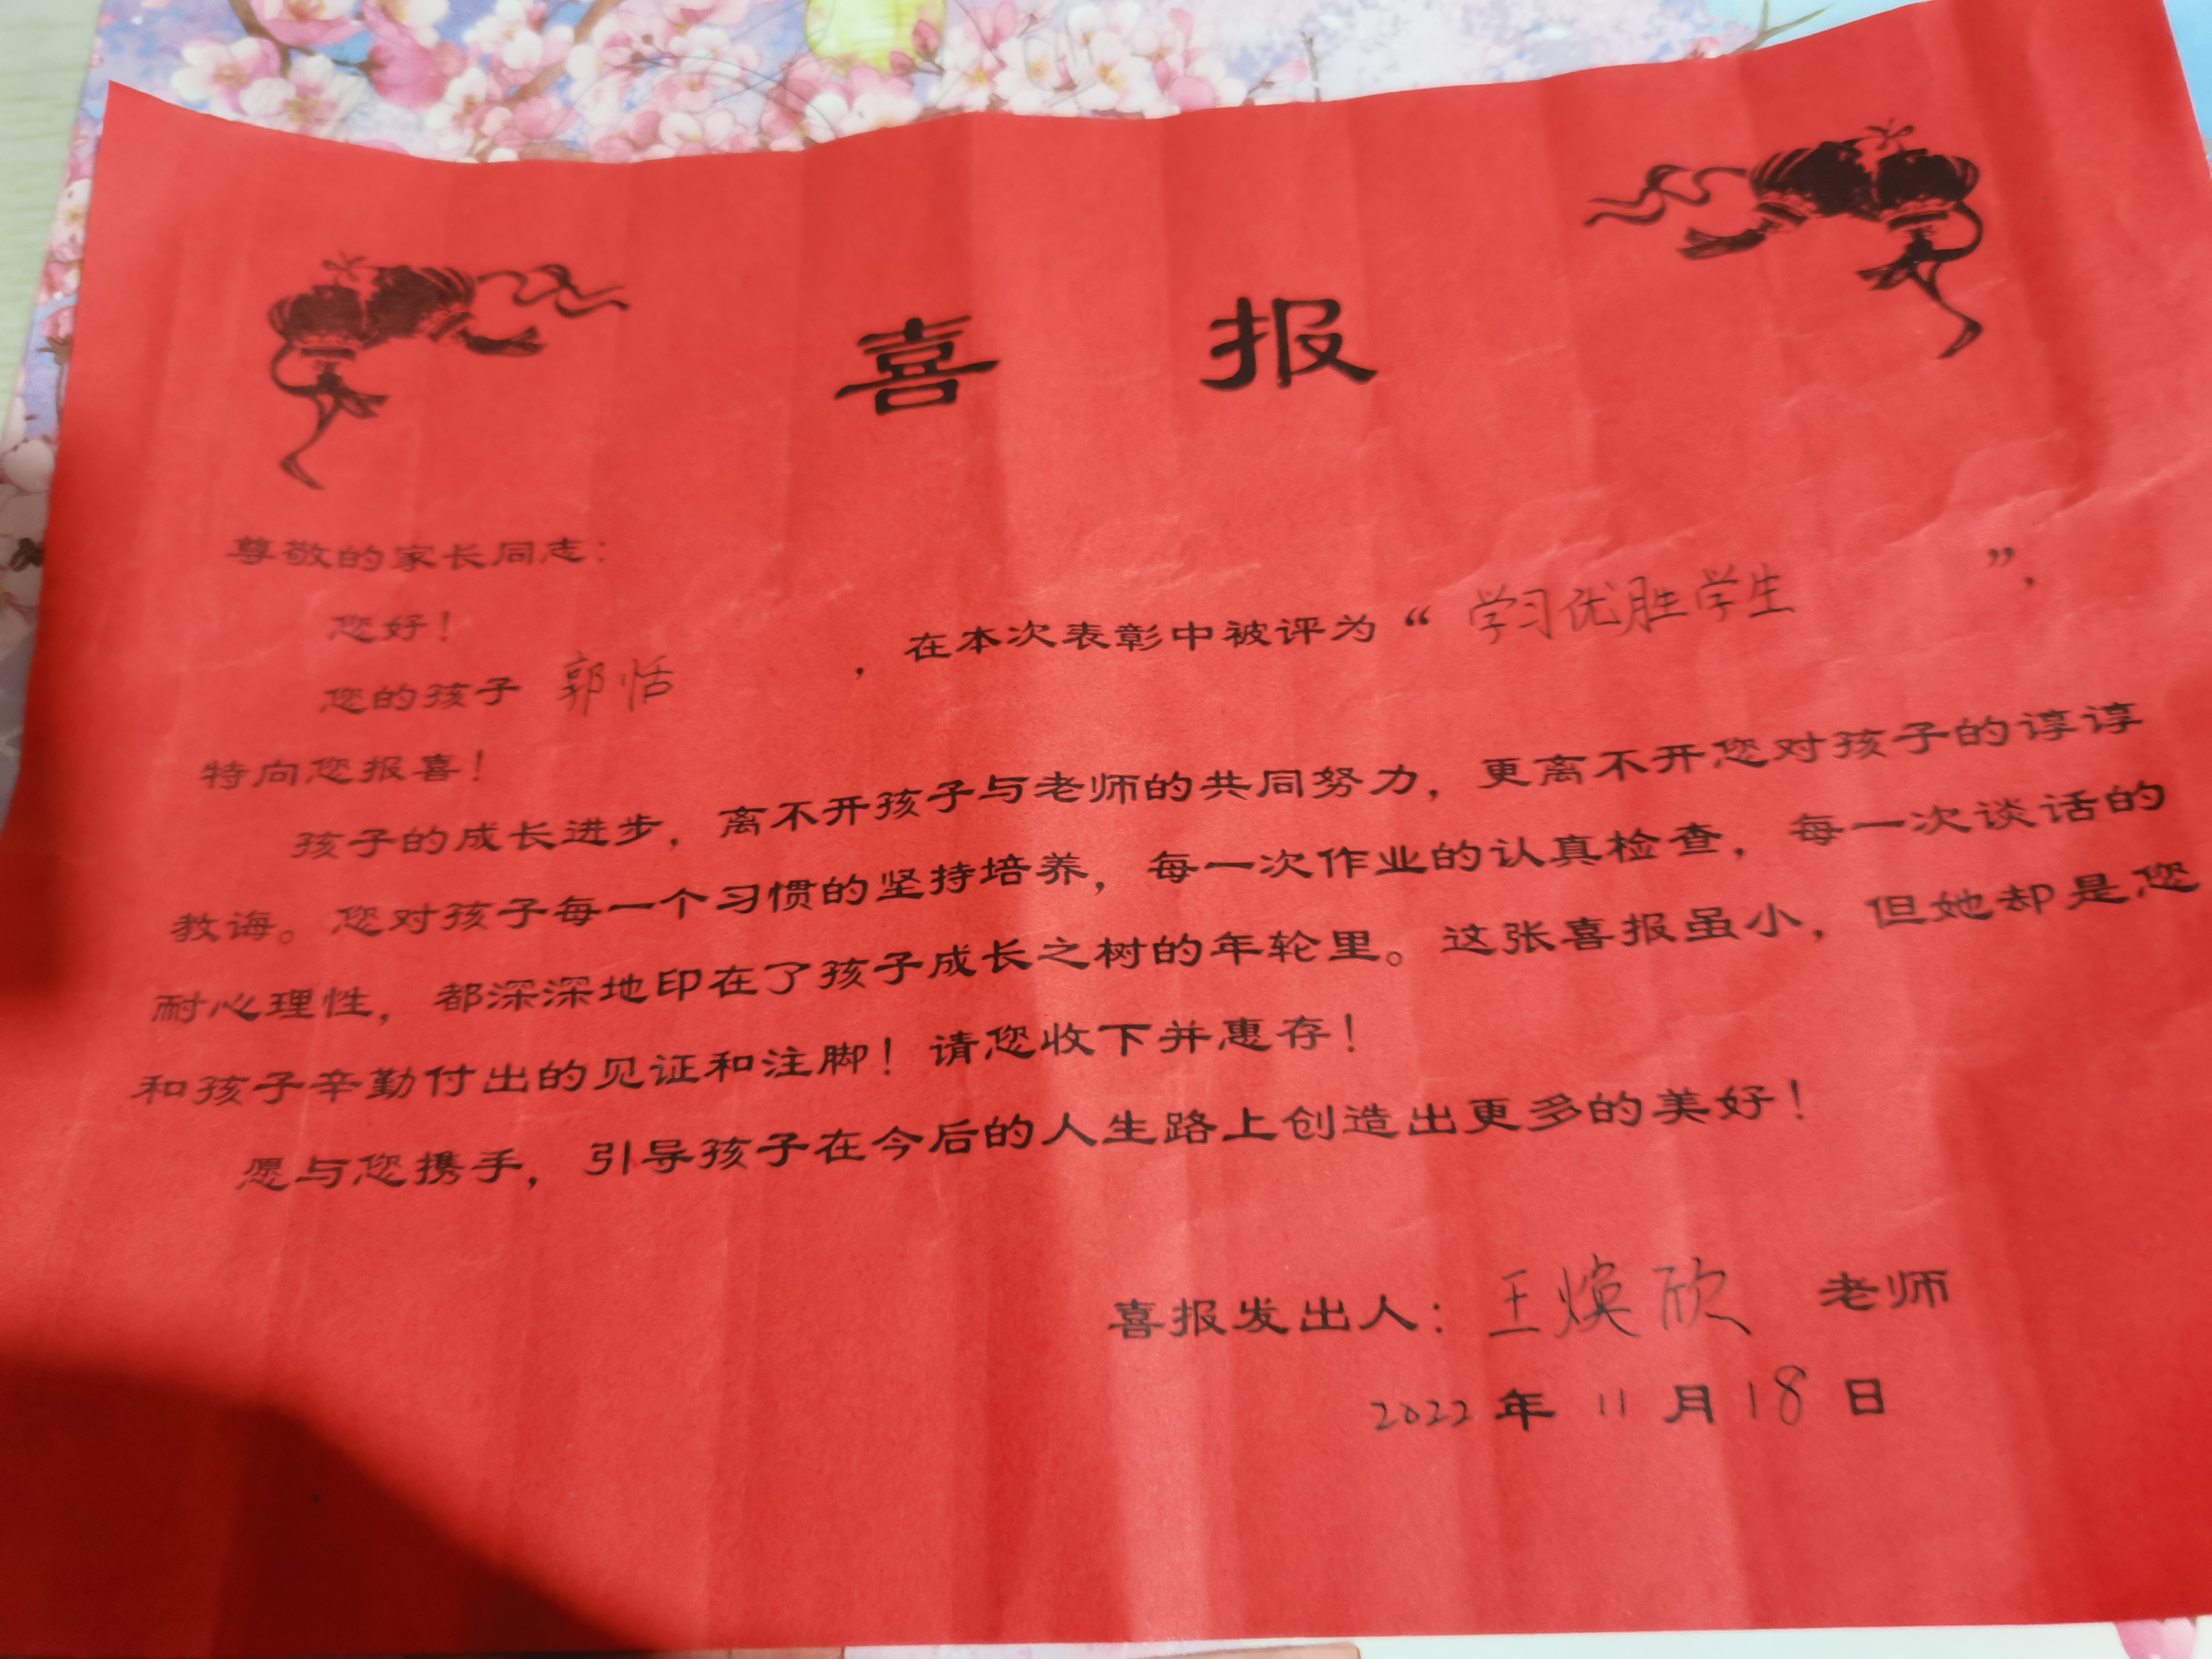 喜 报
尊敬的家长同志：
您好！
您的孩子 郭恬 ，在本次表彰中被评为“ 学习优胜学生 ”，
特向您报喜！
孩子的成长进步，离不开孩子与老师的共同努力，更离不开您对孩子的谆谆
教诲。您对孩子每一个习惯的坚持培养，每一次作业的认真检查，每一次谈话的
耐心理性，都深深地印在了孩子成长之树的年轮里。这张喜报虽小，但她却是您
和孩子辛勤付出的见证和注脚！请您收下并惠存！
愿与您携手，引导孩子在今后的人生路上创造出更多的美好！
喜报发出人：王焕欣 老师
2022 年 11 月 18 日